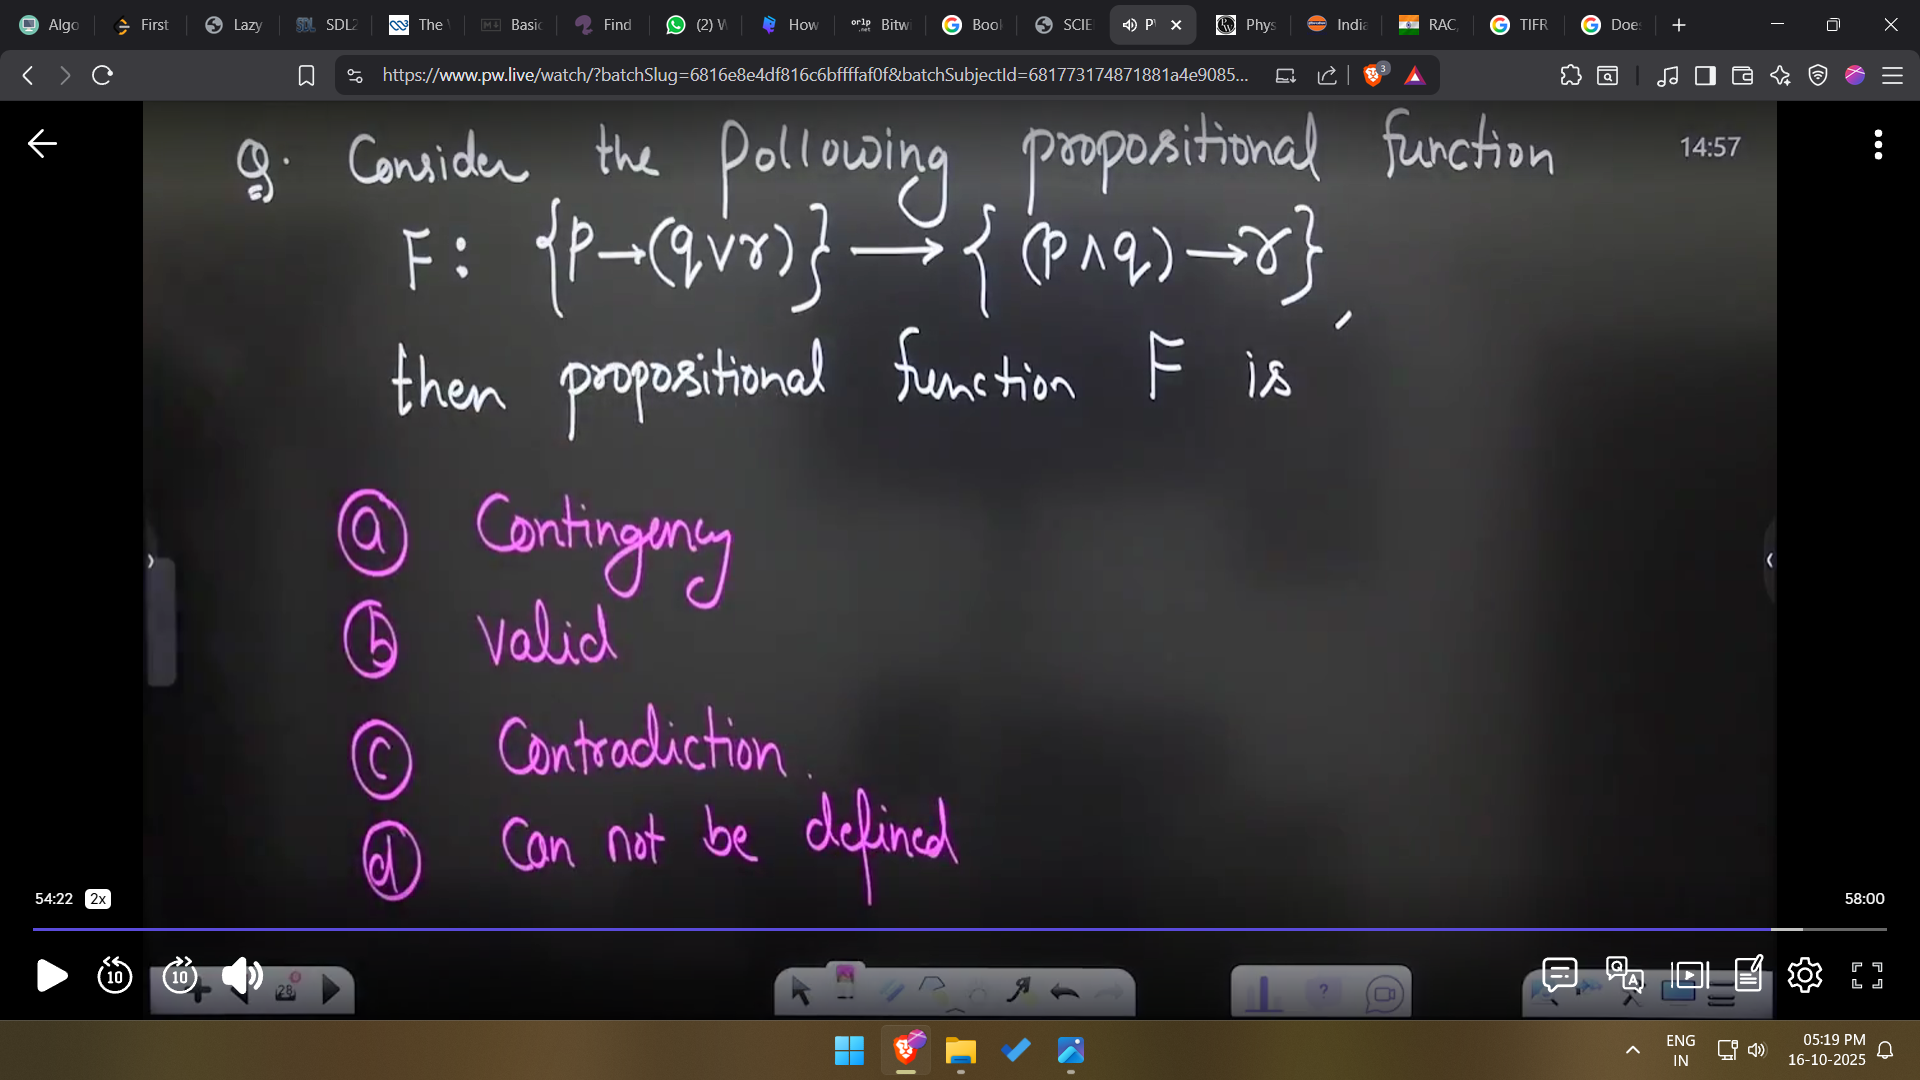 Algo First Lazy SDL2 The Basic Find (2) W How orlp .net Bitwi Book SCIE P Phys India RAC, TIFR Does
https://www.pw.live/watch/?batchSlug=6816e8e4df816c6bffffaf0f&batchSubjectId=681773174871881a4e9085... 3
Q. Consider the following propositional function 14:57
F: {p→(q∨r)} → {(p∧q)→r},
then propositional function F is
a Contingency
b Valid
c Contradiction.
d Can not be defined
54:22 2x 58:00
10 10 28
ENG 05:19 PM
IN 16-10-2025